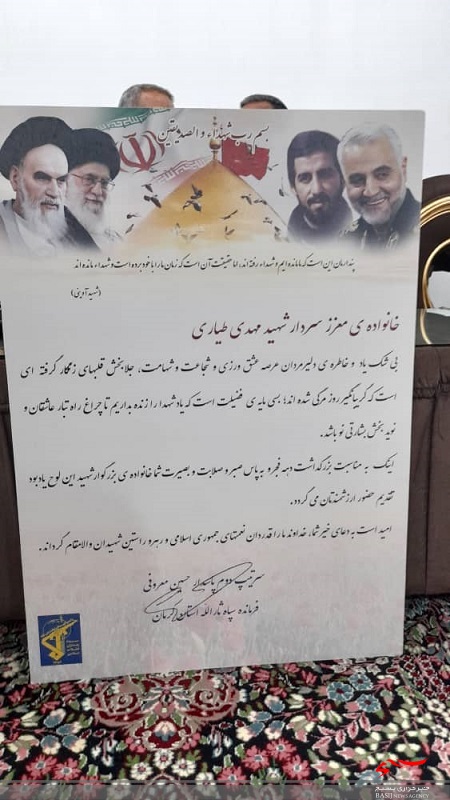 بسم رب الشهداء و الصدیقین
پندار ما این است که ما مانده ایم و شهدا رفته اند، اما حقیقت آن است که زمان ما را با خود برده است و شهدا مانده اند
(شهید آوینی)
خانواده ی معزز سردار شهید مهدی طیاری
بی شک یاد و خاطره ی دلیرمردان عرصه عشق ورزی و شجاعت و شهامت، جلابخش قلبهای زنگار گرفته ای
است که گریبانگیر روز مرگی شده اند؛ بسی مایه ی فضیلت است که یاد شهدا را زنده بداریم تا چراغ راه تبار عاشقان و
نوید بخش بشارتی نو باشد.
اینک به مناسبت بزرگداشت دهه فجر و به پاس صبر و صلابت و بصیرت شما خانواده ی بزرگوار شهید این لوح یادبود
تقدیم حضور ارزشمندتان می گردد.
امید است به دعای خیر شما، خداوند ما را قدردان نعمتهای جمهوری اسلامی و رهرو راستین شهیدان والامقام گرداند.
سرتیپ دوم پاسدار حسین معروفی
فرمانده سپاه ثارالله استان کرمان
خبرگزاری بسیج
BASIJ NEWS AGENCY